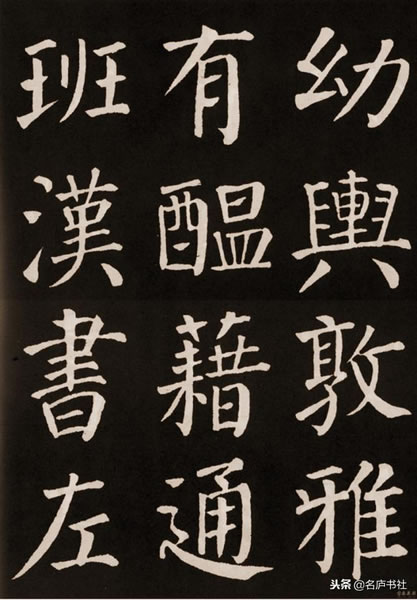 幼輿敦雅
有醖藉通
班漢書左
头条 @名庐书社